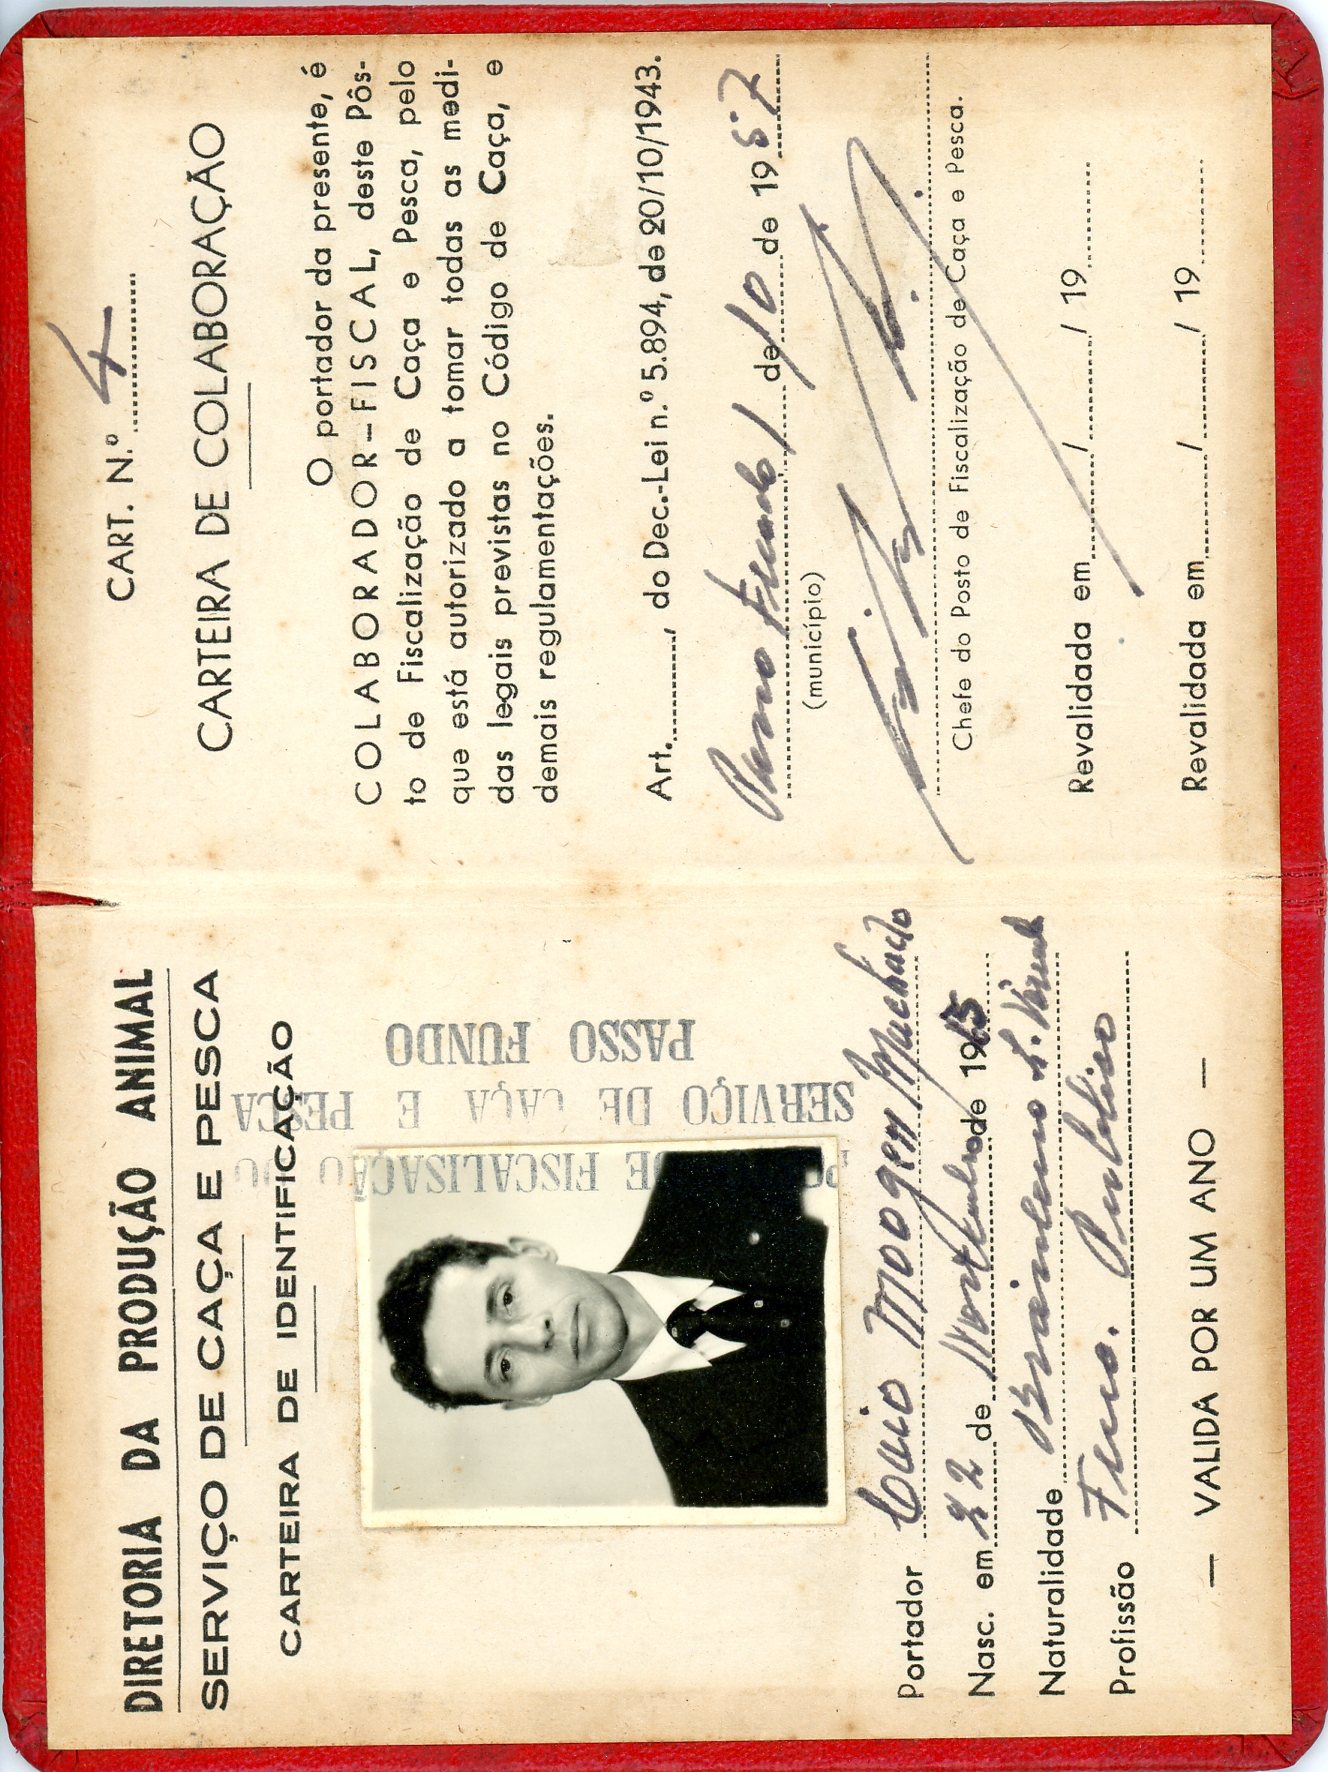 DIRETORIA DA PRODUÇÃO ANIMAL
SERVIÇO DE CAÇA E PESCA
CARTEIRA DE IDENTIFICAÇÃO
DE FISCALISAÇÃO DO
SERVIÇO DE CAÇA E PESCA
PASSO FUNDO
Portador Caio Moogen Machado
Nasc. em 22 de de 19
Naturalidade
Profissão Func. Publico
— VALIDA POR UM ANO —
CART. N.º 4
CARTEIRA DE COLABORAÇÃO
O portador da presente, é
COLABORADOR–FISCAL, deste Pôs-
to de Fiscalização de Caça e Pesca, pelo
que está autorizado a tomar todas as medi-
das legais previstas no Código de Caça, e
demais regulamentações.
Art. , do Dec.-Lei n.º 5.894, de 20/10/1943.
Passo Fundo 1 de 10 de 1957
(município)
Chefe do Posto de Fiscalização de Caça e Pesca.
Revalidada em / / 19
Revalidada em / / 19